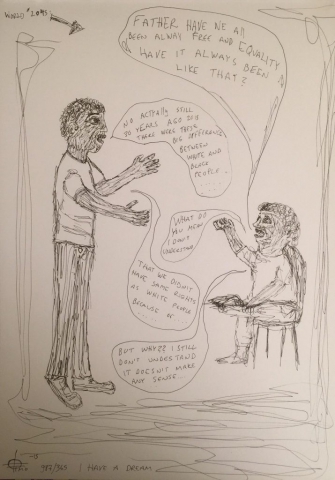 WORLD #2095
FATHER HAVE WE ALL
BEEN ALWAY FREE AND EQUALITY
HAVE IT ALWAYS BEEN
LIKE THAT?
NO ACTUALLY STILL
YEARS AGO
THERE WERE THESE
BIG DIFFERENCE
BETWEEN
WHITE AND
BLACK
PEOPLE.......
WHAT DO
YOU MEAN
I DON'T
UNDERSTAND
THAT WE DIDN'T
HAVE SAME RIGHTS
AS WHITE PEOPLE
BECAUSE OF
......
BUT WHY?? I STILL
DON'T UNDESTAND
IT DOESN'T MAKE
ANY SENSE...
/365 I HAVE A DREAM